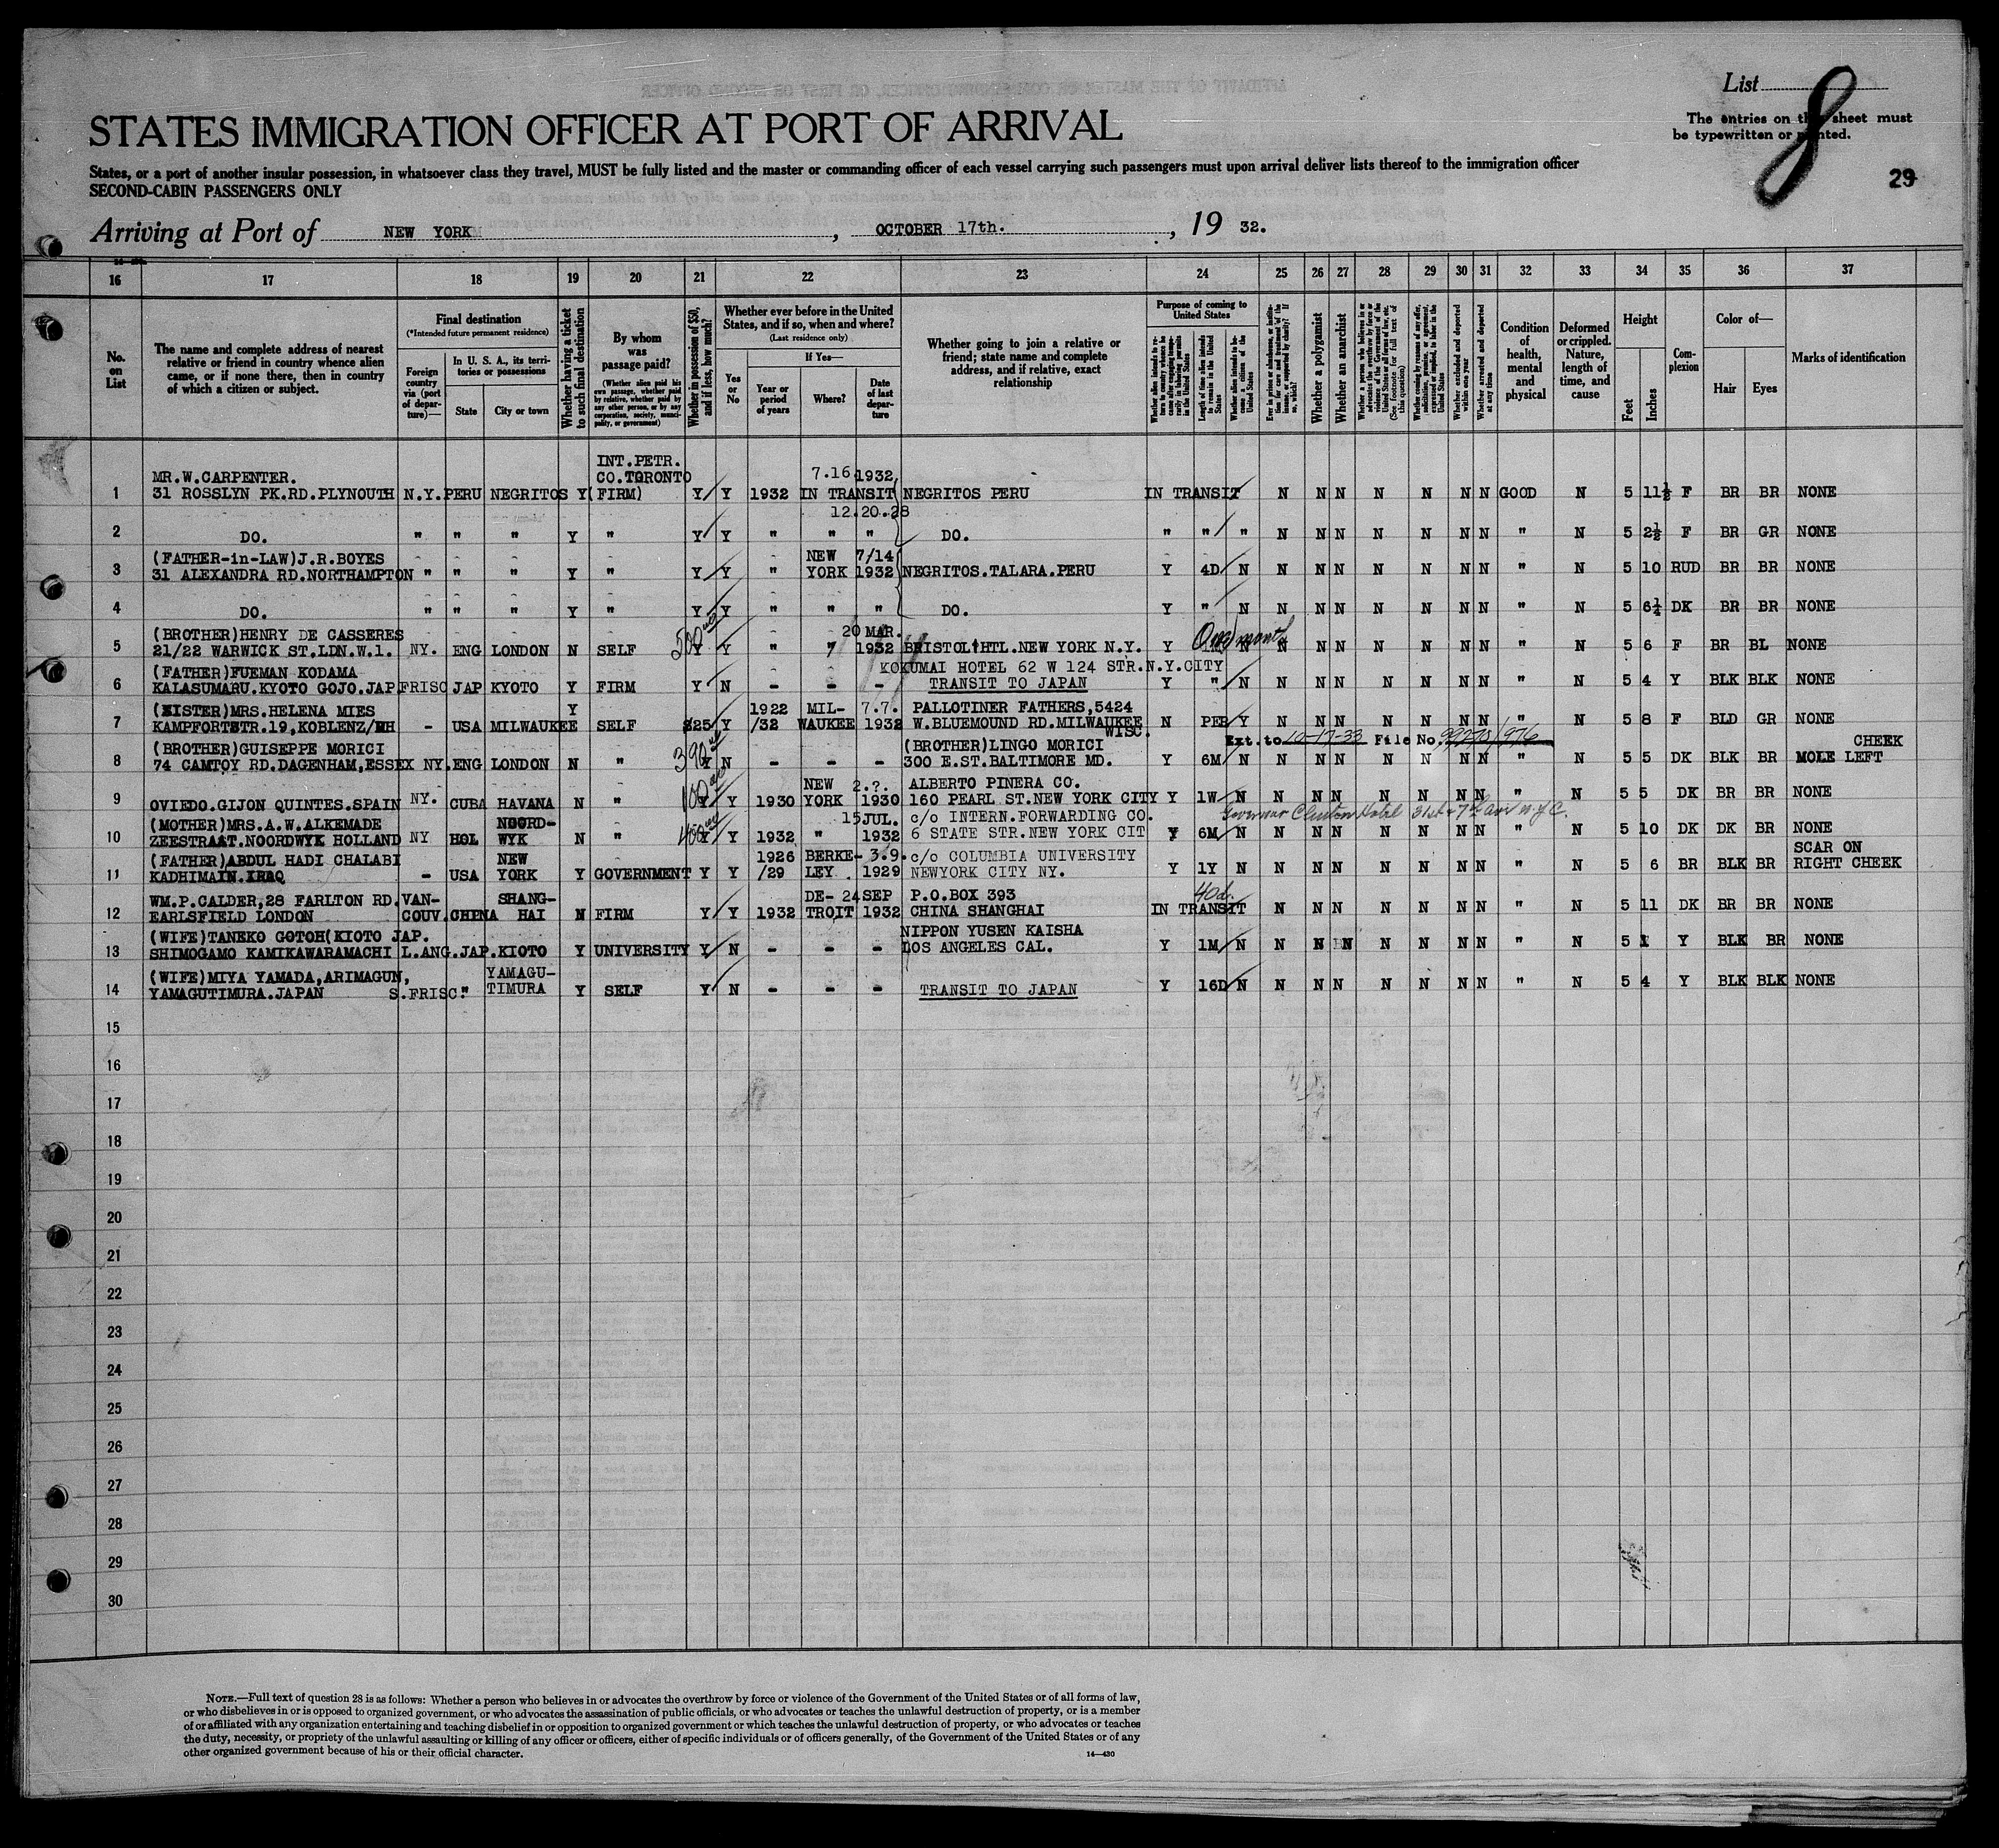 List
8
The entries on this sheet must
be typewritten or printed.
29
STATES IMMIGRATION OFFICER AT PORT OF ARRIVAL
States, or a port of another insular possession, in whatsoever class they travel, MUST be fully listed and the master or commanding officer of each vessel carrying such passengers must upon arrival deliver lists thereof to the immigration officer
SECOND-CABIN PASSENGERS ONLY
Arriving at Port of NEW YORK , OCTOBER 17th. , 19 32.
16 17 18 19 20 21 22 23 24 25 26 27 28 29 30 31 32 33 34 35 36 37
No. on List
The name and complete address of nearest relative or friend in country whence alien came, or if none there, then in country of which a citizen or subject.
Final destination
(*Intended future permanent residence)
Foreign country via (port of departure)—
In U. S. A., its territories or possessions
State
City or town
Whether having a ticket to such final destination
By whom was passage paid?
(Whether alien paid his own passage, whether paid by relative, whether paid by any other person, or by any corporation, society, municipality, or government)
Whether in possession of $50, and if less, how much?
Whether ever before in the United States, and if so, when and where?
(Last residence only)
If Yes—
Yes or No
Year or period of years
Where?
Date of last departure
Whether going to join a relative or friend; state name and complete address, and if relative, exact relationship
Purpose of coming to United States
Length of time alien intends to remain in the United States
Whether alien intends to become a citizen of the United States
Whether a polygamist
Whether an anarchist
Whether excluded and deported within one year
Whether arrested and deported at any time
Condition of health, mental and physical
Deformed or crippled. Nature, length of time, and cause
Height
Feet
Inches
Complexion
Color of—
Hair
Eyes
Marks of identification
INT.PETR.
MR.W.CARPENTER. CO.TORONTO 7.16 1932,
1 31 ROSSLYN PK.RD.PLYNOUTH N.Y. PERU NEGRITOS Y (FIRM) Y Y 1932 IN TRANSIT NEGRITOS PERU IN TRANSIT N N N N N N N GOOD N 5 11½ F BR BR NONE
12.20.28
2 DO. " " " Y " Y Y " " " DO. " " " N N N N N N N " N 5 2½ F BR GR NONE
(FATHER-in-LAW)J.R.BOYES NEW 7/14
3 31 ALEXANDRA RD.NORTHAMPTON " " " Y " Y Y " YORK 1932 NEGRITOS.TALARA.PERU Y 4D N N N N N N N N " N 5 10 RUD BR BR NONE
4 DO. " " " Y " Y Y " " " DO. Y " N N N N N N N N " N 5 6¼ DK BR BR NONE
(BROTHER)HENRY DE CASSERES 500 20 MAR. One month
5 21/22 WARWICK ST.LDN.W.1. NY. ENG LONDON N SELF Y Y " " 1932 BRISTOL HTL.NEW YORK N.Y. Y N N N N N N N N " N 5 6 F BR BL NONE
(FATHER)FUEMAN KODAMA KOKUMAI HOTEL 62 W 124 STR.N.Y.CITY
6 KALASUMARU.KYOTO GOJO.JAP FRISC JAP KYOTO Y FIRM Y N - - - TRANSIT TO JAPAN Y " N N N N N N N N " N 5 4 Y BLK BLK NONE
(SISTER)MRS.HELENA MIES Y 1922 MIL- 7.7. PALLOTINER FATHERS,5424
7 KAMPFORTSTR.19,KOBLENZ/RH - USA MILWAUKEE SELF $25 Y /32 WAUKEE 1932 W.BLUEMOUND RD.MILWAUKEE N PER Y N N N N N N N " N 5 8 F BLD GR NONE
WISC.
Ext. to 10-17-33 File No. 99270/976
(BROTHER)GUISEPPE MORICI 390 (BROTHER)LINGO MORICI CHEEK
8 74 CAMTOY RD.DAGENHAM,ESSEX NY. ENG LONDON N " Y N - - - 300 E.ST.BALTIMORE MD. Y 6M N N N N N N N N " N 5 5 DK BLK BR MOLE LEFT
100 NEW 2.?. ALBERTO PINERA CO.
9 OVIEDO.GIJON QUINTES.SPAIN NY. CUBA HAVANA N " Y Y 1930 YORK 1930 160 PEARL ST.NEW YORK CITY Y 1W N N N N N N N N " N 5 5 DK BR BR NONE
Governor Clinton Hotel 31st & 7th Ave N.Y.C.
(MOTHER)MRS.A.W.ALKEMADE NOORD- 15 JUL. c/o INTERN.FORWARDING CO.
10 ZEESTRAAT.NOORDWYK HOLLAND NY HOL WYK N " Y Y 1932 " 1932 6 STATE STR.NEW YORK CIT Y 6M N N N N N N N N " N 5 10 DK DK BR NONE
(FATHER)ABDUL HADI CHALABI NEW 1926 BERKE- 3.9. c/o COLUMBIA UNIVERSITY SCAR ON
11 KADHIMAIN.IRAQ - USA YORK Y GOVERNMENT Y Y /29 LEY. 1929 NEWYORK CITY NY. Y 1Y N N N N N N N N " N 5 6 BR BLK BR RIGHT CHEEK
WM.P.CALDER,28 FARLTON RD. VAN- SHANG- DE- 24 SEP P.O.BOX 393 40d.
12 EARLSFIELD LONDON COUV. CHINA HAI N FIRM Y Y 1932 TROIT 1932 CHINA SHANGHAI IN TRANSIT N N N N N N N " N 5 11 DK BR BR NONE
(WIFE)TANEKO GOTOH(KIOTO JAP. NIPPON YUSEN KAISHA
13 SHIMOGAMO KAMIKAWARAMACHI L.ANG. JAP. KIOTO Y UNIVERSITY Y N - - - LOS ANGELES CAL. Y 1M N N N N N N N N " N 5 1 Y BLK BR NONE
(WIFE)MIYA YAMADA,ARIMAGUN, YAMAGU-
14 YAMAGUTIMURA.JAPAN S.FRISC. " TIMURA Y SELF Y N - - - TRANSIT TO JAPAN Y 16D N N N N N N N N " N 5 4 Y BLK BLK NONE
15
16
17
18
19
20
21
22
23
24
25
26
27
28
29
30
NOTE.—Full text of question 28 is as follows: Whether a person who believes in or advocates the overthrow by force or violence of the Government of the United States or of all forms of law,
or who disbelieves in or is opposed to organized government, or who advocates the assassination of public officials, or who advocates or teaches the unlawful destruction of property, or is a member
of or affiliated with any organization entertaining and teaching disbelief in or opposition to organized government or which teaches the unlawful destruction of property, or who advocates or teaches
the duty, necessity, or propriety of the unlawful assaulting or killing of any officer or officers, either of specific individuals or of officers generally, of the Government of the United States or of any
other organized government because of his or their official character.
14—430